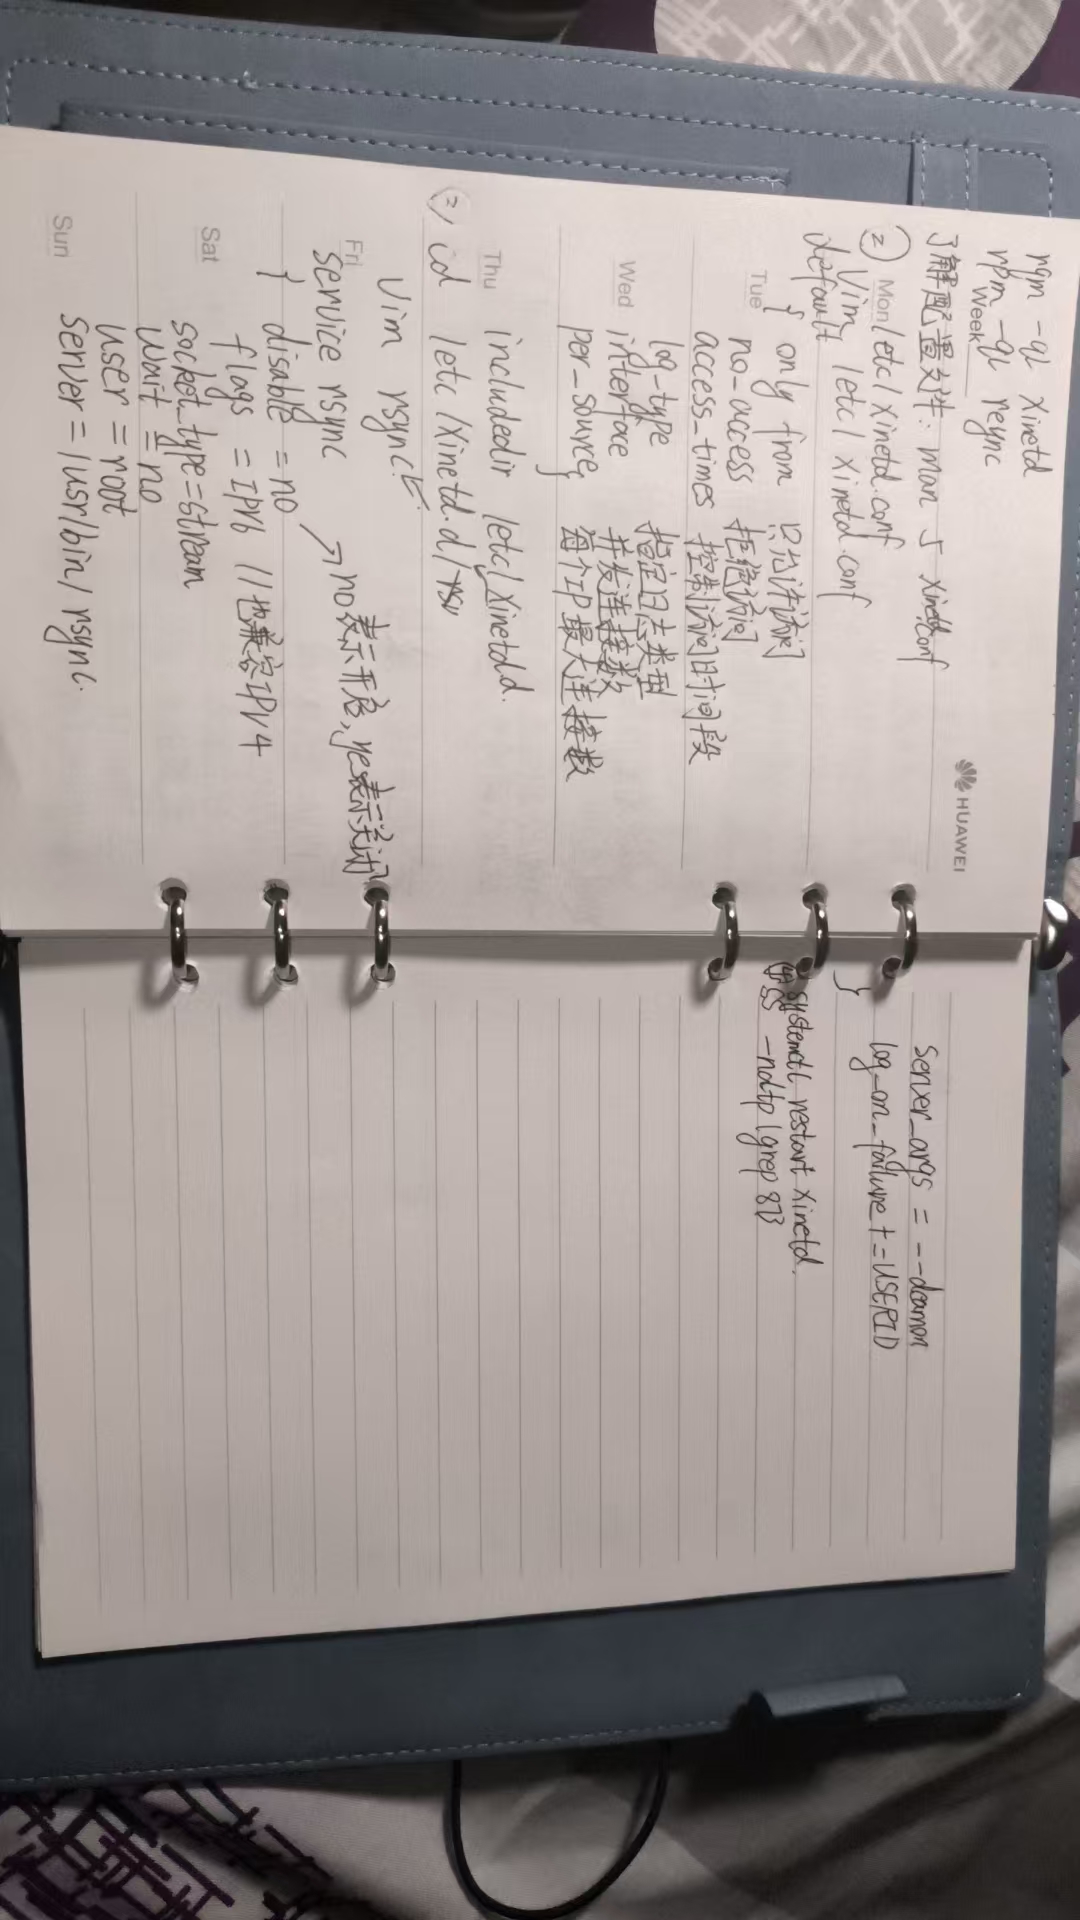 rpm -ql xinetd
rpm -ql rsync
Week
HUAWEI
了解配置文件: man 5 xinetd.conf
② /etc/xinetd.conf
Mon
Vim /etc/xinetd.conf
default
{ only from 只允许访问
Tue
no_access 拒绝访问
access_times 控制访问时间段
log-type 指定日志类型
Wed
interface 并发连接数
per_source 每个IP最大连接数
}
Thu
includedir /etc/xinetd.d.
②, cd /etc/xinetd.d/rsy
Vim rsync
Fri
service rsync
{ disable = no → no表示开启, yes表示关闭
flags = IPv6 //也兼容IPV4
Sat
socket_type = stream
Wait = no
user = root
Sun
server = /usr/bin/rsync.
server_args = --deamon
log_on_failure += USERID
}
systemctl restart xinetd.
④ ss -ndtp | grep 873